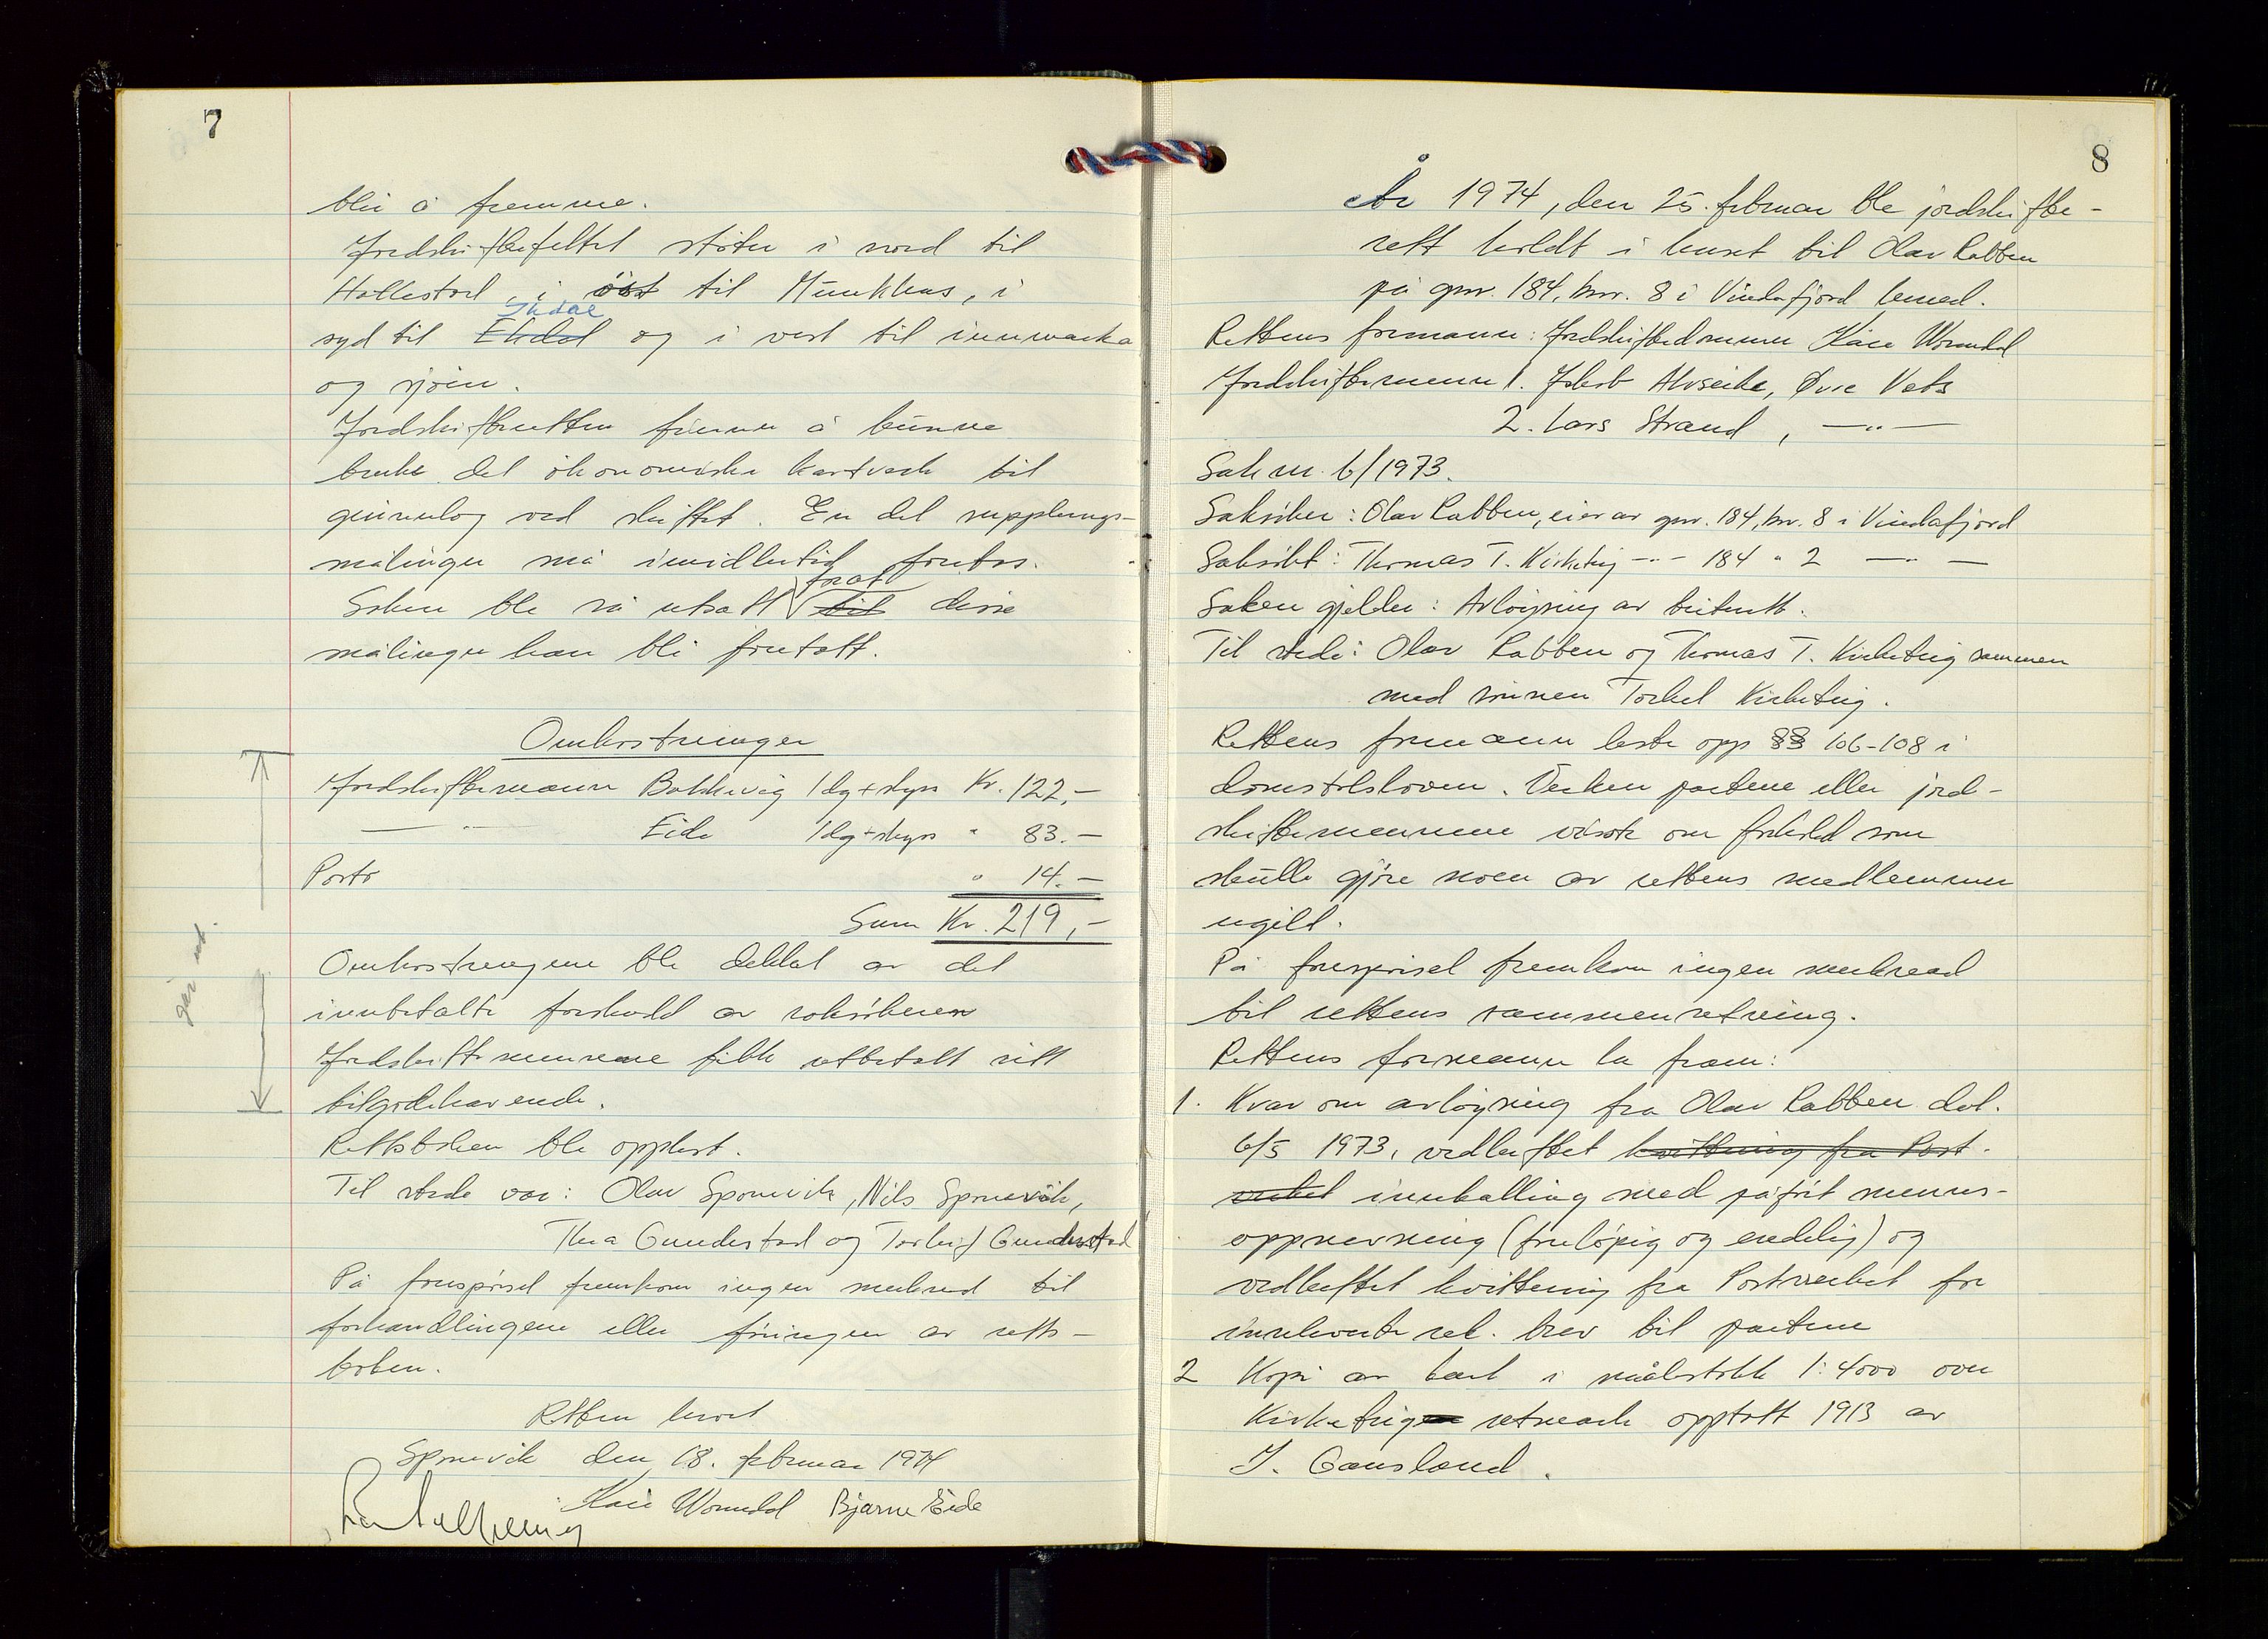 7
blir å fremme.
Jordskiftefeltet støter i nord til
Hallestad, i øst til Munkhus, i
Ihdal
syd til Ekdal og i vest til innmarka
og sjøen.
Jordskifteretten finner å kunne
bruke det økonomiske kartverk til
grunnlag ved skiftet. En del supplerings-
målinger må imidlertid foretas.
for at
Saken ble så utsatt til disse
målinger kan bli foretatt.
Omkostninger
Jordskiftemann Bakkevig 1 dg + skyss Kr. 122,-
— " — Eide 1 dg + skyss " 83.-
Porto " 14.-
Sum Kr. 219,-
Omkostningene ble dekket av det
innbetalte forskudd av saksøkeren
Jordskiftemennene fikk utbetalt sitt
tilgodehavende.
Rettsboken ble opplest.
Til stede var: Olav Sponevik, Nils Sponevik,
Thea Gundestad og Torleif Gundestad
På forespørsel fremkom ingen merknad til
forhandlingene eller føringen av retts-
boken.
Retten hevet
Sponevik den 18. februar 1974
Kåre Wormdal Bjarne Eide
8
År 1974, den 25. februar ble jordskifte-
rett holdt i huset til Olav Rabben
på gnr. 184, bnr. 8 i Vindafjord herred.
Rettens formann: Jordskiftedommer Kåre Wormdal
Jordskiftemenn 1. Jakob Alvseike, Øvre Vats
2. Lars Strand, — " —
Sak nr. 6/1973.
Saksøker: Olav Rabben, eier av gnr. 184, bnr. 8 i Vindafjord
Saksøkt: Thomas T. Kirketeig — " — 184 " 2 — " —
Saken gjelder: Avløysing av beiterett.
Til stede: Olav Rabben og Thomas T. Kirketeig sammen
med sønnen Torkel Kirketeig.
Rettens formann leste opp §§ 106-108 i
domstolsloven. Verken partene eller jord-
skiftemennene visste om forhold som
skulle gjøre noen av rettens medlemmer
ugild.
På forespørsel fremkom ingen merknad
til rettens sammensetning.
Rettens formann la fram:
1. Krav om avløysing fra Olav Rabben dat.
6/5 1973, vedheftet kvittering fra Post-
verket innkalling med påført menns-
oppnevning (foreløpig og endelig) og
vedheftet kvittering fra Postverket for
innleverte rek. brev til partene
2 Kopi av kart i målestokk 1:4000 over
Kirketeig utmark opptatt 1913 av
J. Gausland.